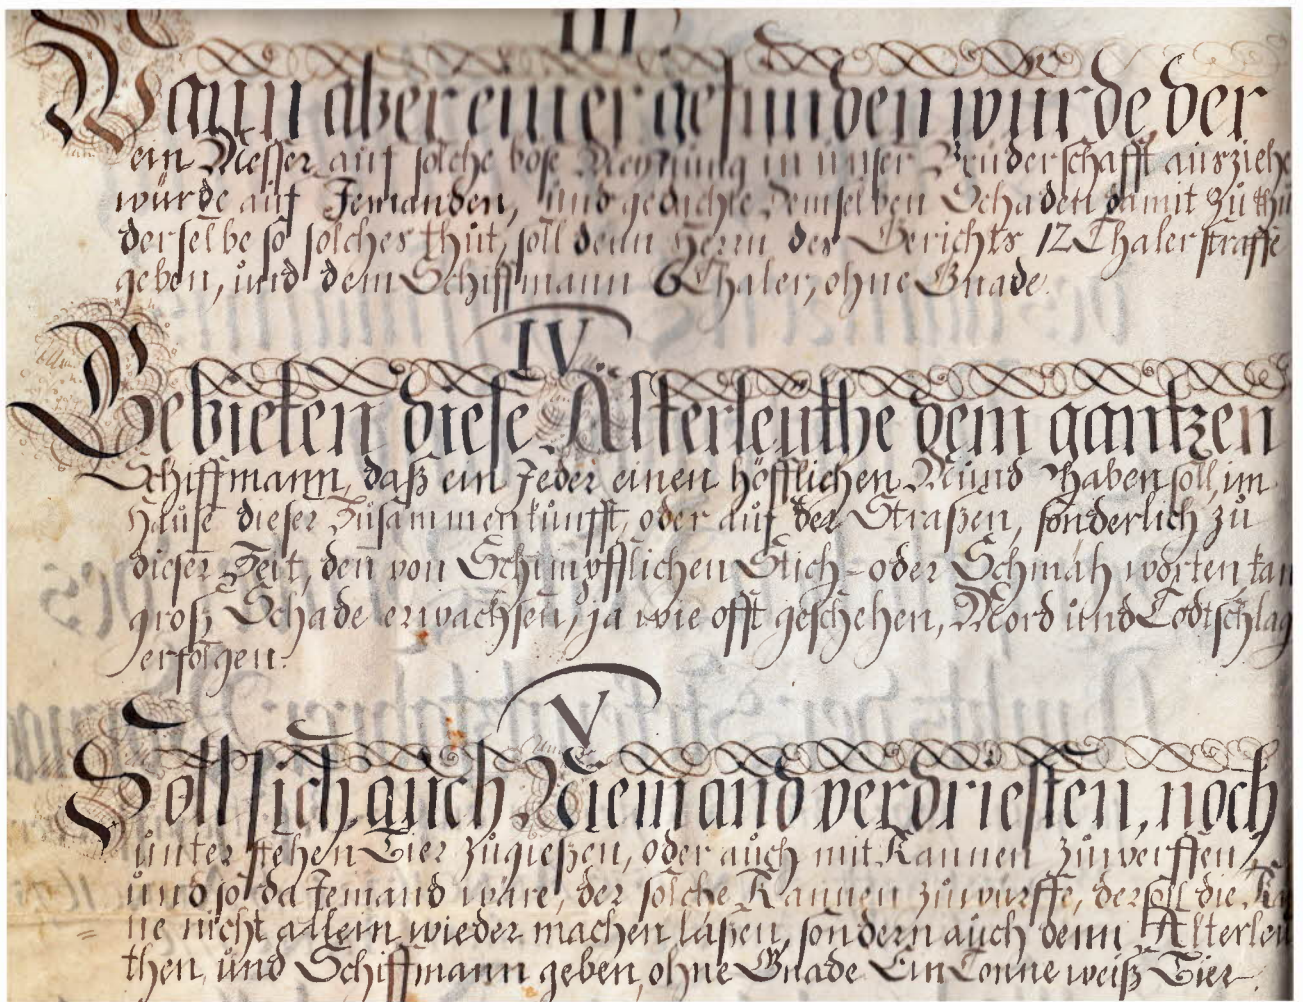 III
Wann aber einer gefunden würde, der
ein Messer auf solche böse Meynung in unser Brüderschafft ausziehe
würde auf Jemanden, und gedächte demselben Schaden damit zu thu
derselbe so solches thut, soll denn Herrn des Gerichts 12 Thaler straffe
geben, und dem Schiffmann 6 Thaler, ohne Gnade.
IV
Gebieten diese Älterleuthe dem gantzen
Schiffmann, daß ein Jeder einen höfflichen Mund haben soll, im
Hause dieser Zusammenkunfft, oder auf der Straßen, sonderlich zu
dieser Zeit, den̄ von Schimpfflichen Stich- oder Schmäh worten kan
groß Schade erwachsen, ja wie offt geschehen, Mord und Todtschlag
erfolgen.
V
Soll sich auch Niemand verdriesten, noch
unter stehen Bier zugießen, oder auch mit Kannen zuwerffen,
und so da Jemand wäre, der solche Kannen zuwürffe, der soll die Ka
ne nicht allein wieder machen laßen, sondern auch denn Älterleu
then, und Schiffmann geben, ohne Gnade Ein Tonne weiß Bier.